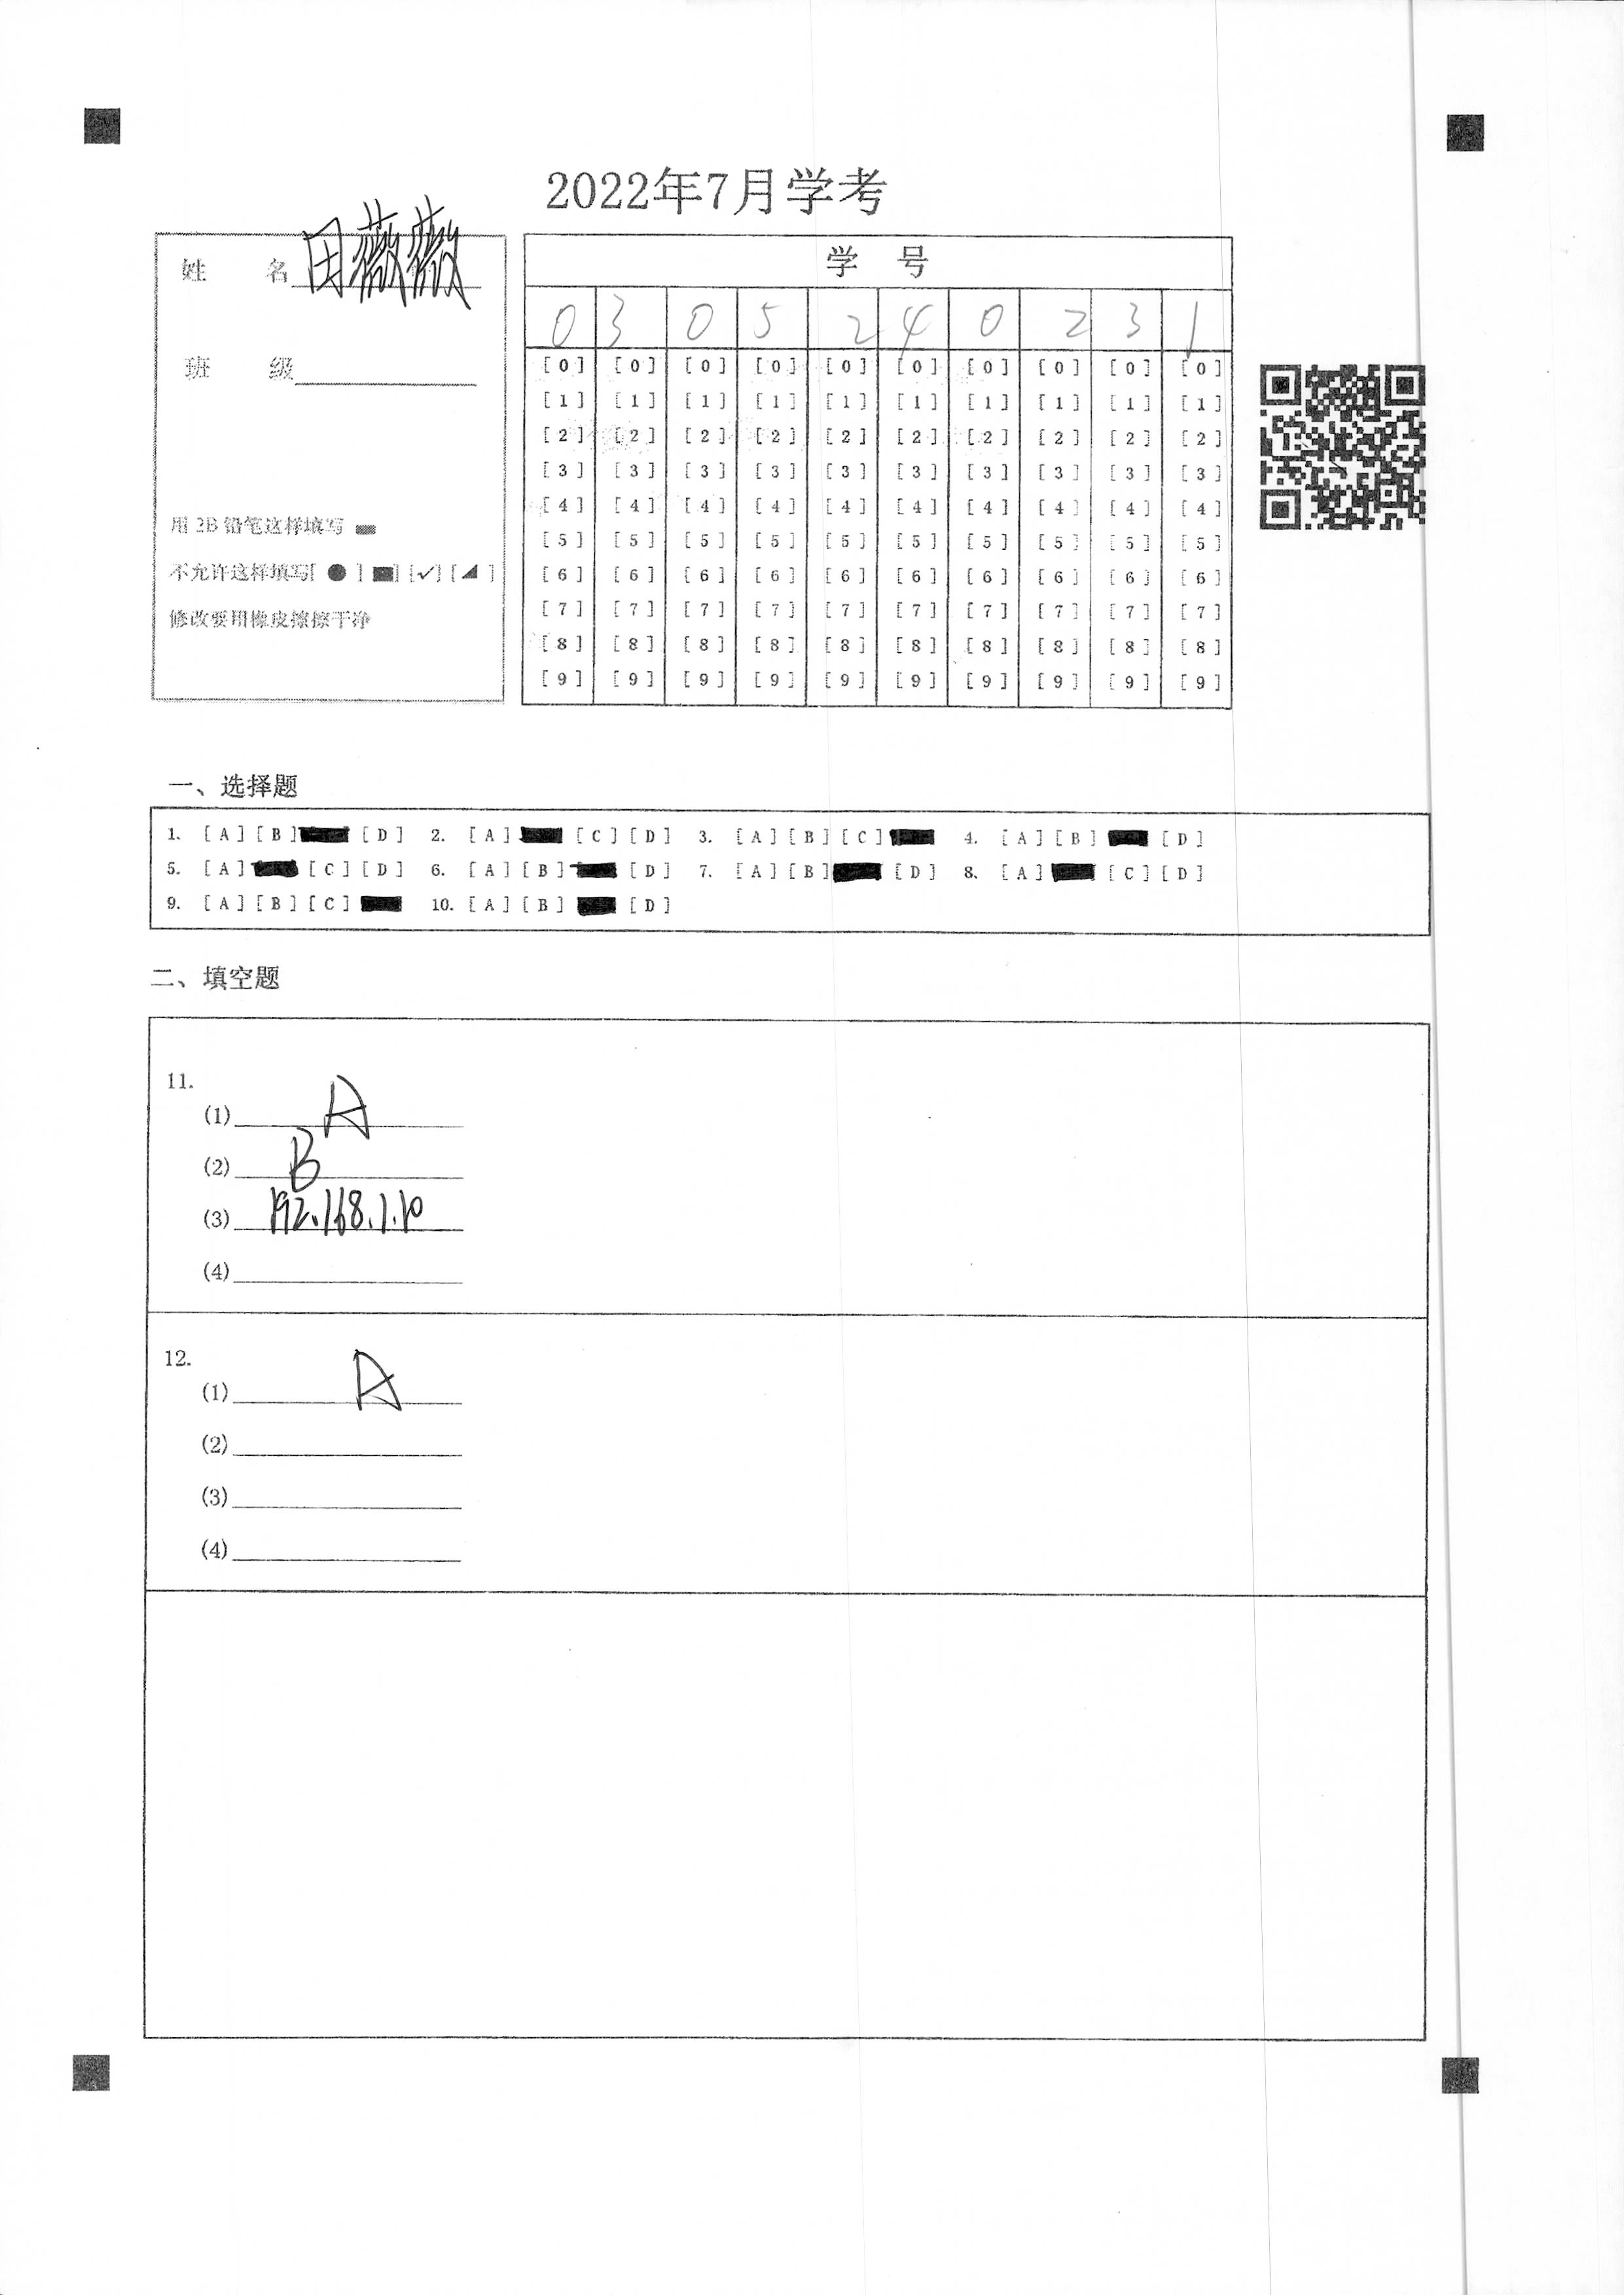 2022年7月学考
姓 名 田薇薇
班 级
用 2B 铅笔这样填写
不允许这样填写[ ● ] [■] [✓] [◢ ]
修改要用橡皮擦擦干净
学 号
0 3 0 5 2 4 0 2 3 1
[0] [0] [0] [0] [0] [0] [0] [0] [0] [0]
[1] [1] [1] [1] [1] [1] [1] [1] [1] [1]
[2] [2] [2] [2] [2] [2] [2] [2] [2] [2]
[3] [3] [3] [3] [3] [3] [3] [3] [3] [3]
[4] [4] [4] [4] [4] [4] [4] [4] [4] [4]
[5] [5] [5] [5] [5] [5] [5] [5] [5] [5]
[6] [6] [6] [6] [6] [6] [6] [6] [6] [6]
[7] [7] [7] [7] [7] [7] [7] [7] [7] [7]
[8] [8] [8] [8] [8] [8] [8] [8] [8] [8]
[9] [9] [9] [9] [9] [9] [9] [9] [9] [9]
一、选择题
1. [A] [B] [D] 2. [A] [C] [D] 3. [A] [B] [C] 4. [A] [B] [D]
5. [A] [C] [D] 6. [A] [B] [D] 7. [A] [B] [D] 8. [A] [C] [D]
9. [A] [B] [C] 10. [A] [B] [D]
二、填空题
11.
(1) A
(2) B
(3) 192.168.1.10
(4)
12.
(1) A
(2)
(3)
(4)